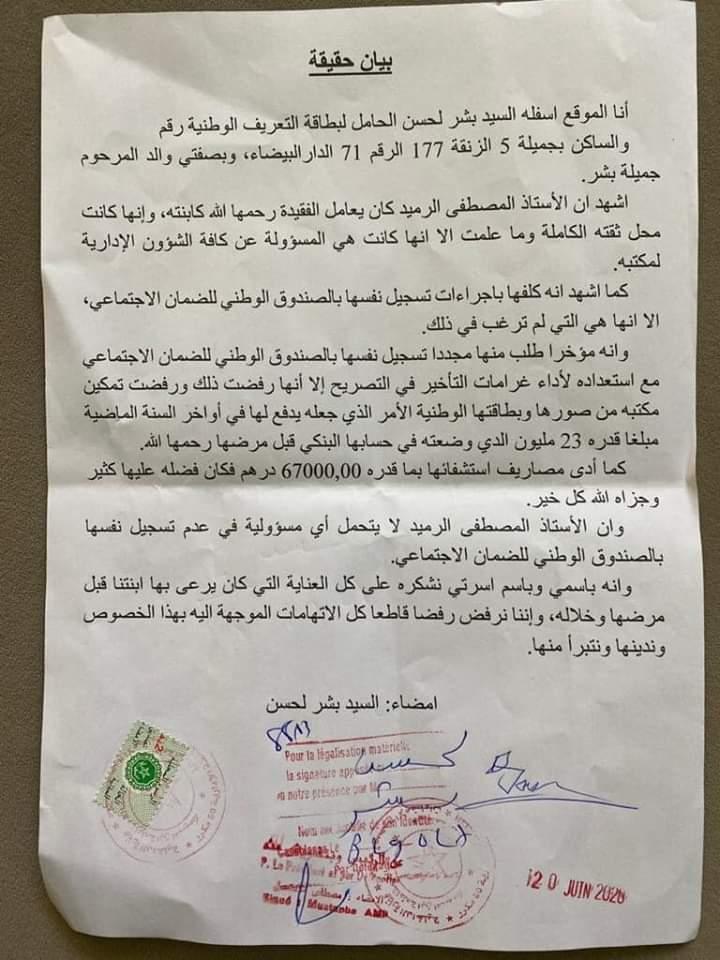 بيان حقيقة
أنا الموقع اسفله السيد بشر لحسن الحامل لبطاقة التعريف الوطنية رقم
والساكن بجميلة 5 الزنقة 177 الرقم 71 الدارالبيضاء، وبصفتي والد المرحوم
جميلة بشر.
اشهد ان الأستاذ المصطفى الرميد كان يعامل الفقيدة رحمها الله كابنته، وإنها كانت
محل ثقته الكاملة وما علمت الا انها كانت هي المسؤولة عن كافة الشؤون الإدارية
لمكتبه.
كما اشهد انه كلفها باجراءات تسجيل نفسها بالصندوق الوطني للضمان الاجتماعي،
الا انها هي التي لم ترغب في ذلك.
وانه مؤخرا طلب منها مجددا تسجيل نفسها بالصندوق الوطني للضمان الاجتماعي
مع استعداده لأداء غرامات التأخير في التصريح إلا أنها رفضت ذلك ورفضت تمكين
مكتبه من صورها وبطاقتها الوطنية الأمر الذي جعله يدفع لها في أواخر السنة الماضية
مبلغا قدره 23 مليون الدي وضعته في حسابها البنكي قبل مرضها رحمها الله.
كما أدى مصاريف استشفائها بما قدره 67000,00 درهم فكان فضله عليها كثير
وجزاه الله كل خير.
وان الأستاذ المصطفى الرميد لا يتحمل أي مسؤولية في عدم تسجيل نفسها
بالصندوق الوطني للضمان الاجتماعي.
وانه باسمي وباسم اسرتي نشكره على كل العناية التي كان يرعى بها ابنتنا قبل
مرضها وخلاله، وإننا نرفض رفضا قاطعا كل الاتهامات الموجهة اليه بهذا الخصوص
وندينها ونتبرأ منها.
امضاء: السيد بشر لحسن
Pour la légalisation matérielle
la signature apposée
en notre présence par M
Nom aux
de son identité
20 JUIN 2020